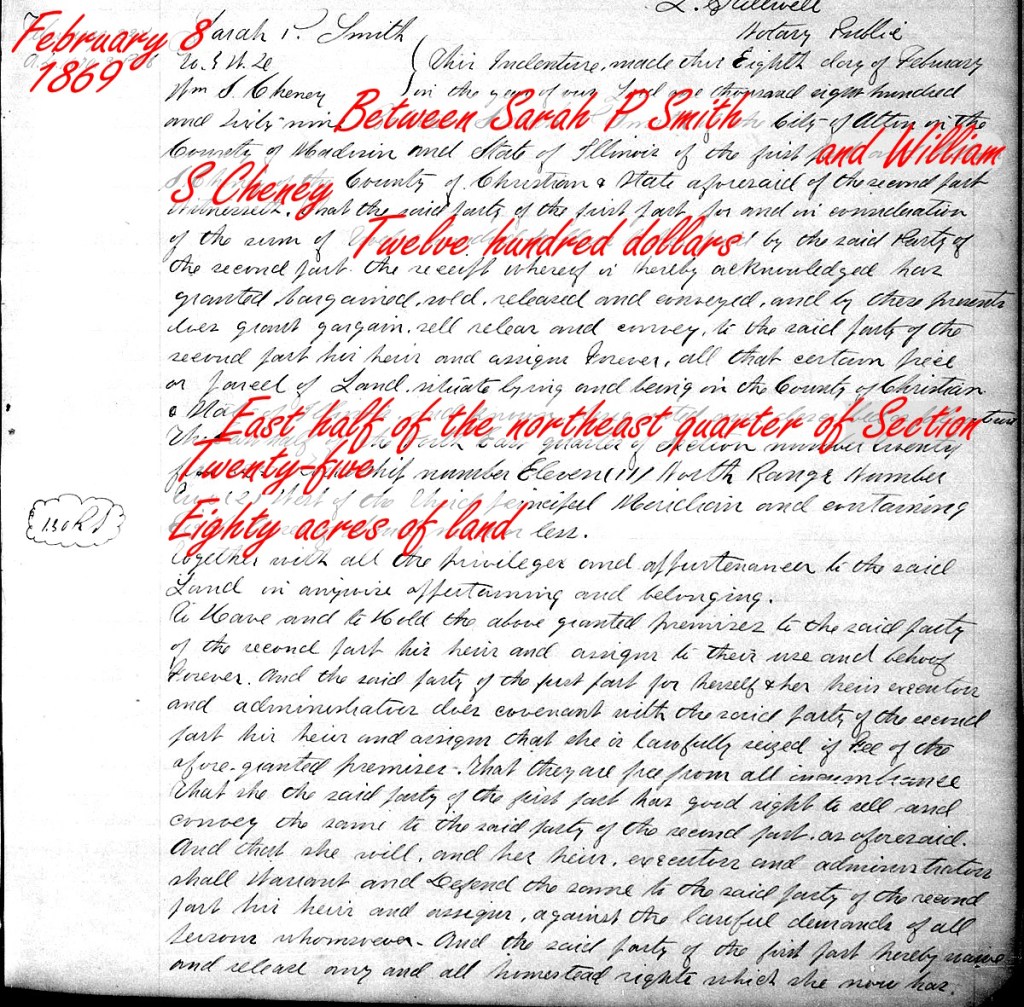 L. Stillwell
Notary Public
February 8
1869
Sarah P. Smith
To & W. De
Wm S. Cheney
This Indenture, made this Eighth day of February
in the year of our Lord one thousand eight hundred
and Sixty-nin Between Sarah P Smith City of Alton in the
County of Madison and State of Illinois of the first and William
S Cheney County of Christian & State aforesaid of the second part
Witnesseth. That the said party of the first part, for and in consideration
of the sum of Twelve hundred dollars by the said Party of
the second part the receipt whereof is hereby acknowledged has
granted, bargained, sold, released and conveyed, and by these presents
does grant gargain, sell releas and convey, to the said party of the
second part his heirs and assigns Forever, all that certain piece
or parcel of Land, situate lying and being in the County of Christian
& East half of the northeast quarter of Section
quarter of Section number twenty
Twenty-five ship number Eleven (11) North Range Number
West of the Third Principal Meridian and containing
Eighty acres of land less.
Together with all the privileges and appurtenances to the said
Land in anywise appertaining and belonging.
To Have and to Hold the above granted premises to the said party
of the second part his heirs and assigns to their use and behoof
Forever. And the said party of the first part for herself & her heirs executors
and administrators does covenant with the said party of the second
part his heirs and assigns that she is lawfully seized if Fee of the
afore-granted premises - That they are free from all incumbrance
That she the said party of the first part has good right to sell and
convey the same to the said party of the second part, as aforesaid.
And that she will, and her heirs, executors and administrators
shall Warrant and Defend the same to the said party of the second
part his heirs and assigns, against the lawful demands of all
Persons whomsoever - And the said party of the first part hereby waive
and release any and all homestead rights which she now has.